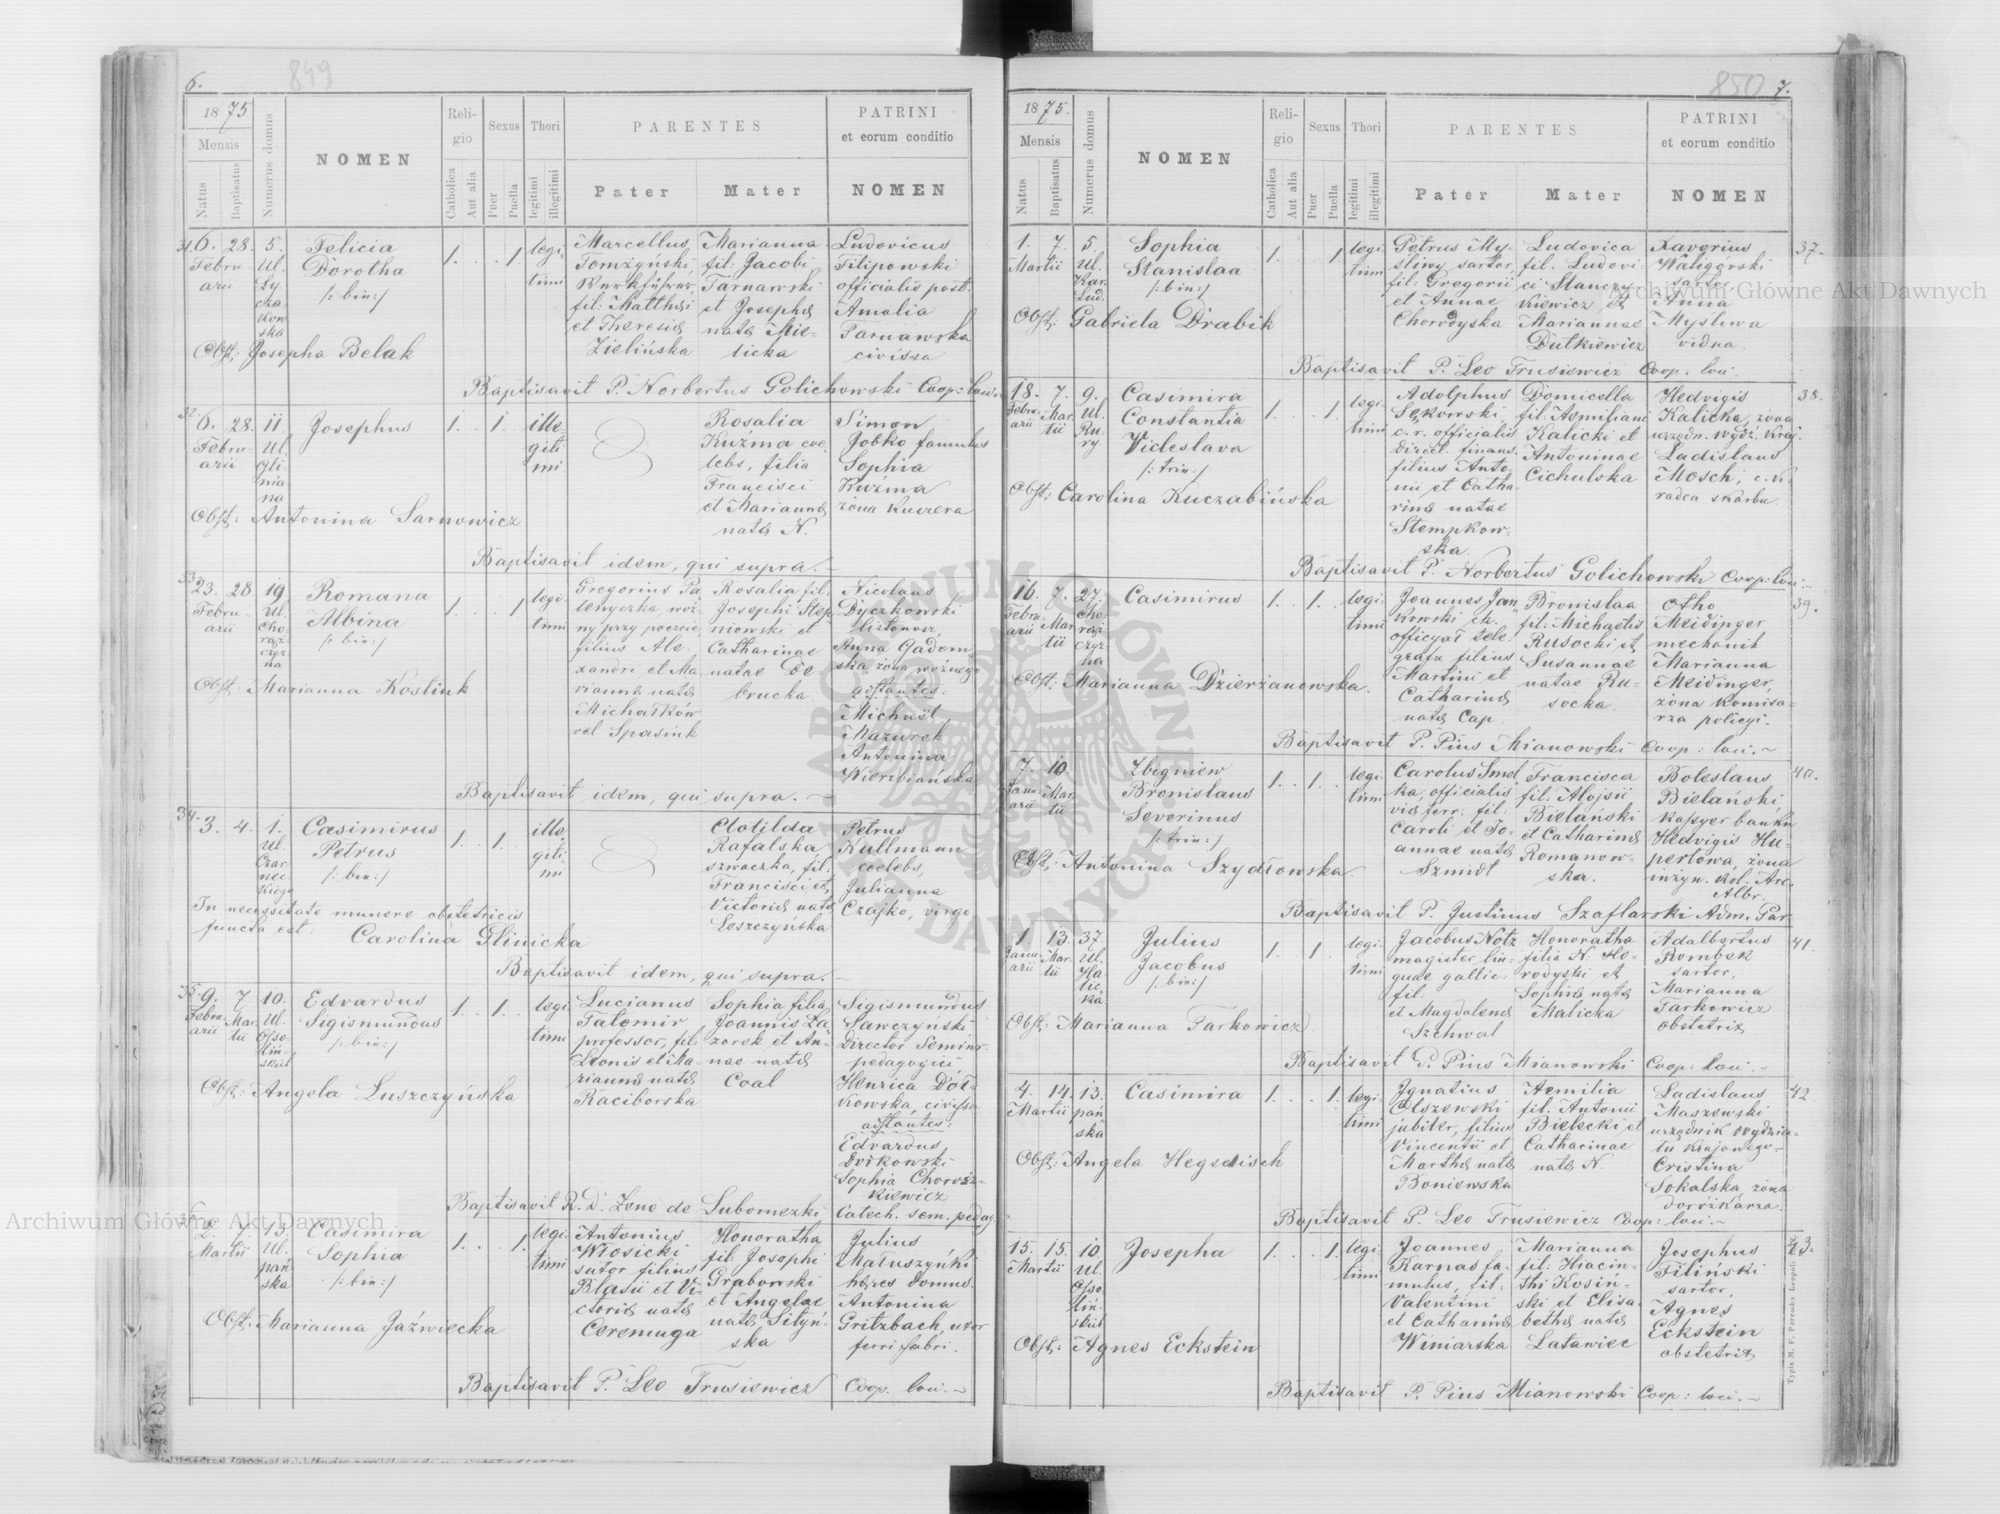 6.
849
1875
Mensis
Natus
Baptisatus
Numerus domus
NOMEN
Religio
Catholica
Aut alia
Sexus
Puer
Puella
Thori
legitimi
illegitimi
PARENTES
Pater
Mater
PATRINI
et eorum conditio
NOMEN
31.
6.
Febru-
arii
28.
5.
Ul.
Ły-
cza-
kow
ska
Felicia
Dorotha
/:bin:/
1. . . 1.
legi-
timi
Marcellus
Tomżyński,
Werkführer,
fil: Matthæi
et Theresiæ
Zielińska
Marianna
fil: Jacobi
Tarnawski
et Josephæ
natæ Mie-
licka
Ludovicus
Filipowski
officialis post.
Amalia
Tarnawska
civissa
Obst: Josepha Belak
Baptisavit P. Norbertus Golichowski Coop: loci.
32.
6.
Febru-
arii
28.
11.
Ul.
Gli-
nia-
na
Josephus
1. . 1. .
ille-
giti-
mi
Rosalia
Kuźma coe-
lebs, filia
Francisci
et Mariannæ
natæ N.
Simon
Jobko famulus
Sophia
Kuźma
żona kuszera
Obst: Antonina Sarnowicz
Baptisavit idem, qui supra.
33.
23.
Febru-
arii
28.
19.
Ul.
Cho-
rąż
czyz-
na
Romana
Albina
/:bin:/
1. . . 1
legi-
timi
Gregorius Pa
lenyczka woź-
ny przy poczcie,
filius Ale-
xandri et Ma-
riannæ natæ
Michałków
vel Spasiuk
Rosalia fil:
Josephi Step-
niowski et
Catharinae
natae De
brucka
Nicolaus
Dyczkowski
listonosz,
Anna Gadom-
ska żona woźnego
astantes:
Michaël
Mazurek
Antonina
Wierzbiańska
Obst: Marianna Kostiuk
Baptisavit idem, qui supra.
34.
3.
4.
1.
Ul.
Czar
nec-
kiego
Casimirus
Petrus
/:bin:/
1. . 1. .
ille-
giti-
mi
Clotilda
Rafalska
szwaczka, fil:
Francisci et
Victoriæ natæ
Leszczyńska
Petrus
Kullmann
coelebs,
Julianna
Czajko, virgo
In necessitate munere obstetricis
functa est: Carolina Glinicka
Baptisavit idem, qui supra.
35.
9.
Febru-
arii
7
Mar-
tii
10.
Ul.
Osso-
liń-
skich
Edvardus
Sigismundus
/:bin:/
1. . 1. .
legi-
timi
Lucianus
Tatomir
professor, fil:
Leonis et Ma-
riannæ natæ
Raciborska
Sophia filia
Joannis Ła-
zorek et An-
nae natæ
Coal
Sigismundus
Sawczyński
Director Seminar.
pedagogici
Henrica Doł-
kowska, civissa
astantes:
Edvardus
Dołkowski
Sophia Chorąż-
kiewicz
Obst: Angela Luszczyńska
Baptisavit R. D. Zeno de Lubomęzki Catech. sem. pedag.
36.
2.
Martii
7.
13.
Ul.
pań-
ska
Casimira
Sophia
/:bin:/
1. . . 1.
legi-
timi
Antonius
Włosicki
sutor filius
Blasii et Vi-
ctoriæ natæ
Ceremuga
Honoratha
fil: Josephi
Grabowski
et Angelae
natæ Sityń-
ska
Julius
Matuszyński
hæres domus
Antonina
Gritzbach, uxor
ferri fabri.
Obst: Marianna Jaźwiecka
Baptisavit P. Leo Trusiewicz Coop. loci.
850
7.
1875.
Mensis
Natus
Baptisatus
Numerus domus
NOMEN
Religio
Catholica
Aut alia
Sexus
Puer
Puella
Thori
legitimi
illegitimi
PARENTES
Pater
Mater
PATRINI
et eorum conditio
NOMEN
1.
Martii
7.
5.
Ul.
Kar.
Lud.
Sophia
Stanislaa
/:bin:/
1. . . 1
legi-
timi
Petrus My-
śliwy sartor,
fil: Gregorii
et Annae
Chorodyska
Ludovica
fil. Ludovi-
ci Stanczy-
kiewicz et
Mariannae
Dutkiewicz
Xaverius
Waligórski
sartor
Anna
Myśliwa
vidua.
37.
Obst: Gabriela Drabik
Baptisavit P. Leo Trusiewicz Coop. loci.
18.
Febru-
arii
7.
Mar-
tii
9.
Ul.
Ru-
ry.
Casimira
Constantia
Vicleslava
/:trin:/
1. . . 1.
legi-
timi
Adolphus
Sękowski
c. r. officialis
direct. finans.
filius Anto-
nii et Catha-
rinæ natae
Stempkow-
ska.
Domicella
fil: Asmiliani
Kalicki et
Antoninae
Cichulska
Hedvigis
Kalicka, żona
urzędn. Wydz. Kraj.
Ladislaus
Mosch, c. k.
radca skarbu.
38.
Obst: Carolina Kuczabińska
Baptisavit P. Norbertus Golichowski Coop: loci.
16.
Febru-
arii
7.
Mar-
tii
27.
Cho-
rąż
czyz-
na
Casimirus
1. . 1. .
legi-
timi
Joannes Jan-
kowski ck.
officyał tele-
grafu filius
Martini et
Catharinæ
natæ Cap
Bronislaa
fil: Michaelis
Rusocki et
Susannae
natae Ru-
socka.
Otho
Meidinger
mechanik
Marianna
Meidinger,
żona komisa-
rza policyi.
39.
Obst: Marianna Dzierżanowska.
Baptisavit P. Pius Mianowski Coop: loci.
7.
Janu-
arii
10.
Mar-
tii
Zbigniew
Bronislaus
Severinus
/:trin:/
1. . 1. .
legi-
timi
Carolus Smol-
ka, officialis
viæ ferr. fil:
Caroli et Jo-
annae natæ
Szmidt
Francisca
fil: Alojsii
Bielański
et Catharinæ
Romanow-
ska.
Boleslaus
Bielański,
kasyer banku
Hedvigis Hu-
pertowa, żona
inżyn. kol. Arc.
Albr.
40.
Obst: Antonina Szydłowska
Baptisavit P. Justinus Szaflarski Adm. Par.
1
Janu-
arii
13.
Mar-
tii
37.
Ul.
Ha-
lic-
ka
Julius
Jacobus
/:bin:/
1. . 1. .
legi-
timi
Jacobus Notz
magister lin-
guae gallic.
fil:
et Magdalenæ
Szchwal
Honoratha
filia N. Ho-
rodyski et
Sophiæ natæ
Malicka
Adalbertus
Rombek
sartor,
Marianna
Tarkowicz
obstetrix
41.
Obst: Marianna Tarkowicz
Baptisavit P. Pius Mianowski Coop: loci.
4.
Martii
14.
13.
pań-
ska
Casimira
1. . . 1.
legi-
timi
Ignatius
Olszewski
jubiler, filius
Vincentii et
Marthæ natæ
Boniewska
Aemilia
fil. Antonii
Bielecki et
Catharinae
natæ N.
Ladislaus
Maszewski
urzędnik Wydzia-
łu Krajowego
Cristina
Sokalska, żona
dorożkarza.
42
Obst: Angela Hegedisch
Baptisavit P. Leo Trusiewicz Coop: loci.
15.
Martii
15.
10.
Ul.
Osso-
liń-
skich
Josepha
1. . . 1.
legi-
timi
Joannes
Karnas fa-
mulus, fil:
Valentini
et Catharinæ
Winiarska
Marianna
fil: Hiacin-
thi Kosiń-
ski et Elisa-
bethæ natæ
Latawiec
Josephus
Filiński
sartor,
Agnes
Eckstein
obstetrix
43.
Obst: Agnes Eckstein
Baptisavit P. Pius Mianowski Coop: loci.
Archiwum Główne Akt Dawnych
Archiwum Główne Akt Dawnych
ARCHIWUM GŁÓWNE AKT DAWNYCH